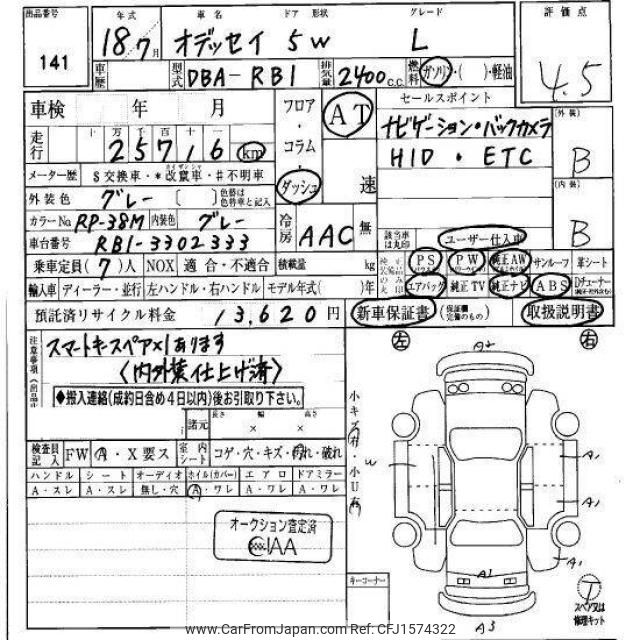 出品番号 年式 車名 ドア 形状 グレード 評価点
141 18 7月 オデッセイ 5W L 4.5
車歴 型式 DBA-RB1 排気量 2400 c.c. 燃料 ガソリン・( )・軽油
車検 年 月 フロア・コラム・ダッシュ AT 速 セールスポイント
ナビゲーション・バックカメラ
HID・ETC
走行 十 万 千 百 十 一
25716 km
外装 B
内装 B
メーター歴 $交換車・*改竄車・#不明車
外装色 グレー 〔 〕 色替は色替車と記入
カラーNo. RP-38M 内装色 グレー
冷房 AAC 無
該当車は丸印 ユーザー仕入車
車台番号 RB1-3302333
乗車定員(7)人 NOX 適合・不適合 積載量 kg
PS PW 純正AW サンルーフ 革シート
輸入車 ディーラー・並行 左ハンドル・右ハンドル モデル年式( )年
エアバッグ 純正TV 純正ナビ ABS Dチューナー
預託済リサイクル料金 13,620円
新車保証書 (保証欄完備のもの) 取扱説明書
注意事項
スマートキースペア×1あります
〈内外装仕上げ済〉
◆搬入連絡(成約日含め4日以内)後お引取り下さい。
諸元 長さ 幅 高さ
× ×
検査員記入 FW A・X要ス 室内シート コゲ・穴・キズ・汚れ・破れ
ハンドル シート オーディオ ホイル(カバー) エアロ ドアミラー
A・スレ A・スレ 無し・穴 A・ワレ A・ワレ A・ワレ
小キズ有・小U有
オークション査定済
CIAA
キーコーナー
左 右
A2
W
A1
A1
A1
A1
A3
T
スペアタイヤ又は修理キット
www.CarFromJapan.com Ref: CFJ1574322